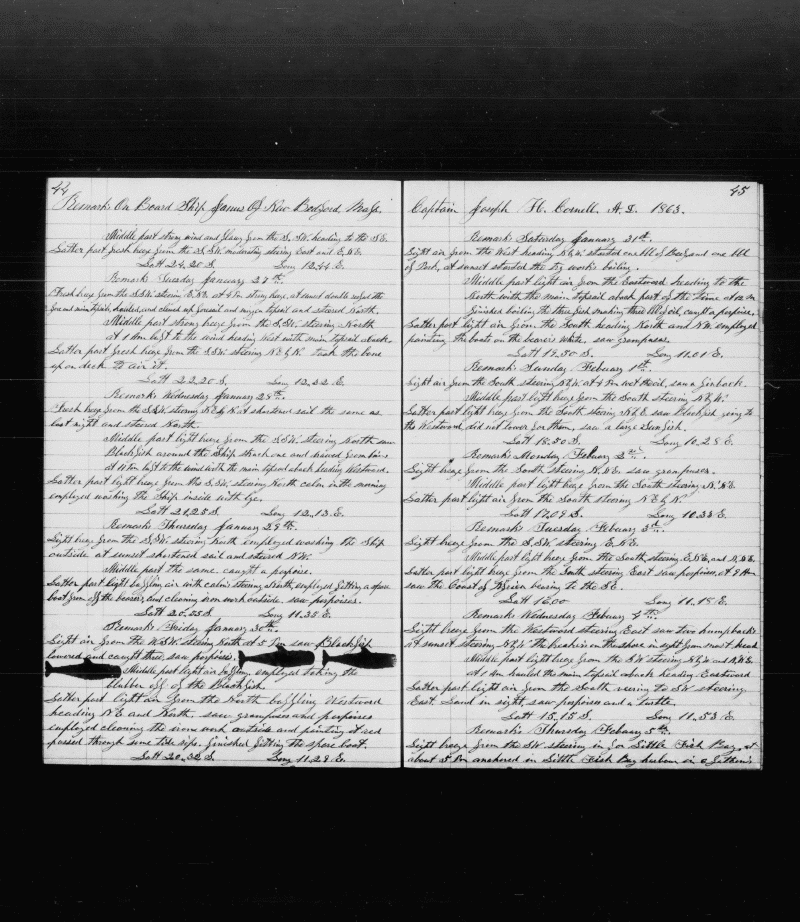 44
Remarks On Board Ship James Of New Bedford, Mass.
Middle part strong wind and from the S. SW. heading to the S.E.
Latter part fresh breeze from the S.SW. moderating steering East and E.NE.
Latt 24.20 S. Long 12.44 E.
Remarks Tuesday January 27th.
Fresh breeze from the S.SW. steering E.NE. at 4 Pm strong breeze, at sunset double reefed the
fore and main topsails, hauled, and clewed up foresail and mizzen topsail and steered North.
Middle part strong breeze from the S.SW. steering North
at 1 Am luft to the wind heading West with main topsail aback.
Latter part fresh breeze from the S.SW. steering N.E by N. took the bone
up on deck to air it.
Latt 22.20 S. Long 12.32 E.
Remarks Wednesday January 28th.
Fresh breeze from the S.SW. steering N.E by N. at shortened sail the same as
last night and steered North.
Middle part light breeze from the S.SW. steering North saw
Blackfish around the Ship struck one and drawed from him
at luft to the wind with the main topsail aback heading Westward.
Latter part light breeze from the S.SW. steering North calm in the morning
employed washing the Ship inside with lye.
Latt 21.25 S. Long 12.13 E.
Remarks Thursday January 29th.
Light breeze from the S.SW. steering North employed washing the Ship
outside at sunset shortened sail and steered N.NW.
Middle part the same. caught a porpoise.
Latter part light baffling air with calm steering North, employed fitting a spare
boat from off the bearers, and cleaning iron work outside. saw porpoises.
Latt 20.55 S. Long 11.35 E.
Remarks Friday January 30th.
Light air from the W.SW. steering North at 5 Pm saw Blackfish
lowered and caught three, saw porpoises.
Middle part light air baffling, employed taking the
blubber off of the Blackfish.
Latter part light air from the North baffling Westward
heading N.E and North. saw grampuses and porpoises
employed cleaning the iron work outside and painting it red
passed through some tide rips. finished fitting the spare boat.
Latt 20.32 S. Long 11.29 E.
45
Captain Joseph H. Cornell. A.D. 1863.
Remarks Saturday January 31st.
Light air from the West heading N by W. started one bbl of Beef, and one bbl
of Pork, at sunset started the try works boiling.
Middle part light air from the Eastward heading to the
North with the main topsail aback part of the time at
finished boiling the three fish making three bbls of oil, caught a porpoise.
Latter part light air from the South heading North and N.W. employed
painting the boats on the bearers White, saw grampuses.
Latt 19.50 S. Long 11.01 E.
Remarks Sunday February 1st.
Light air from the South steering N by W. at 4 Pm wet the oil, saw a finback.
Middle part light breeze from the South steering N by W.
Latter part light breeze from the South steering N by E saw blackfish going to
the Westward did not lower for them, saw a large Sunfish.
Latt 18.50 S. Long 10.28 E.
Remarks Monday Febuary 2nd.
Light breeze from the South steering N.NE. saw grampuses.
Middle part light breeze from the South steering N.NE
Latter part light air from the South steering N.E by N.
Latt 17.09 S. Long 10.33 E.
Remarks Tuesday Febuary 3rd.
Light breeze from the S.SW steering E.NE
Middle part light breeze from the South, steering E.NE, and N.NE
Latter part light breeze from the South steering East saw porpoises, at 9 Am
saw the Coast of bearing to the S.E.
Latt 16.00 Long 11.18 E.
Remarks Wednesday Febuary 4th.
Light breeze from the Westward steering East saw two humpbacks
at sunset steering N by W the breakers on the shore in sight from mast head
Middle part light breeze from the S.W steering N by W and N.NE.
at 1 Am hauled the main topsail aback heading Eastward
Latter part light air from the South veering to SW steering
East. Land in sight, saw porpoises and a Turtle.
Latt 15.15 S. Long 11.53 E.
Remarks Thursday Febuary 5th.
Light breeze from the S.W. steering in for Little Fish Bay, at
about 5 Pm anchored in Little Fish Bay harbour in 6 fathoms